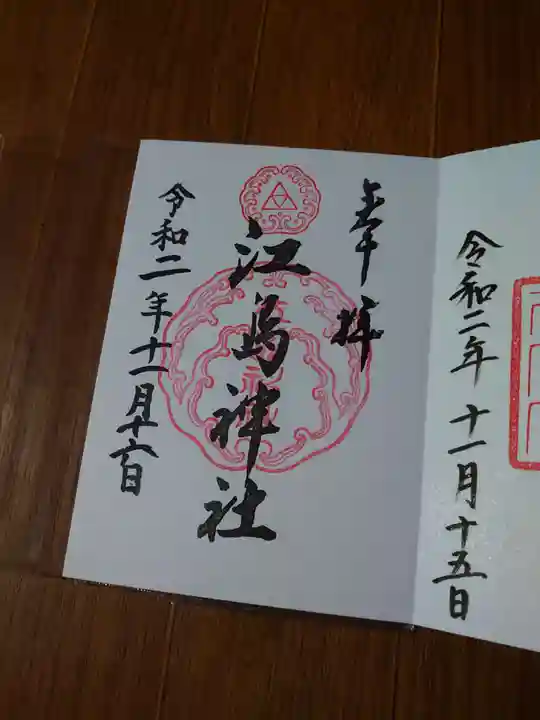 奉拝
江島神社
令和二年十一月十六日
令和二年 十一月十五日